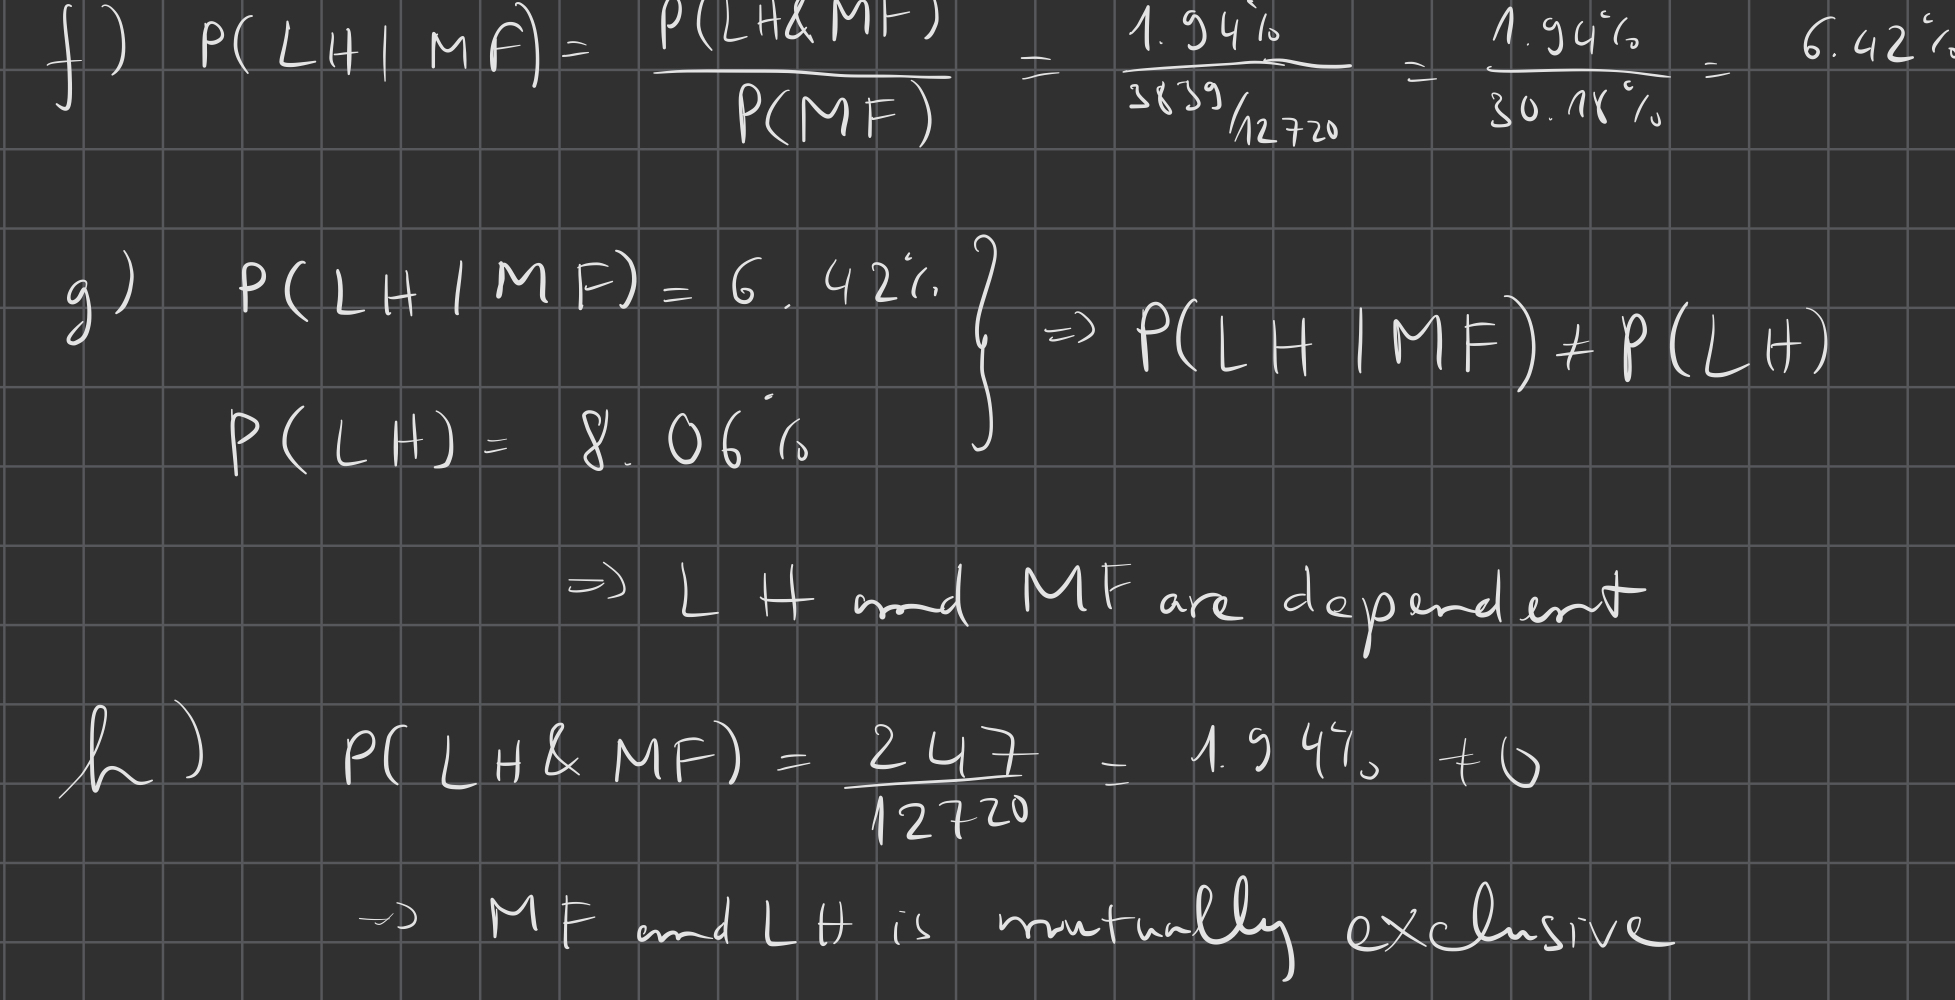 f) P(LH|MF) = P(LH&MF) / P(MF) = 1.94% / 3839/12720 = 1.94% / 30.18% = 6.42%
g) P(LH|MF) = 6.42% } => P(LH|MF) ≠ P(LH)
P(LH) = 8.06%
=> LH and MF are dependent
h) P(LH&MF) = 247 / 12720 = 1.94% ≠ 0
=> MF and LH is mutually exclusive